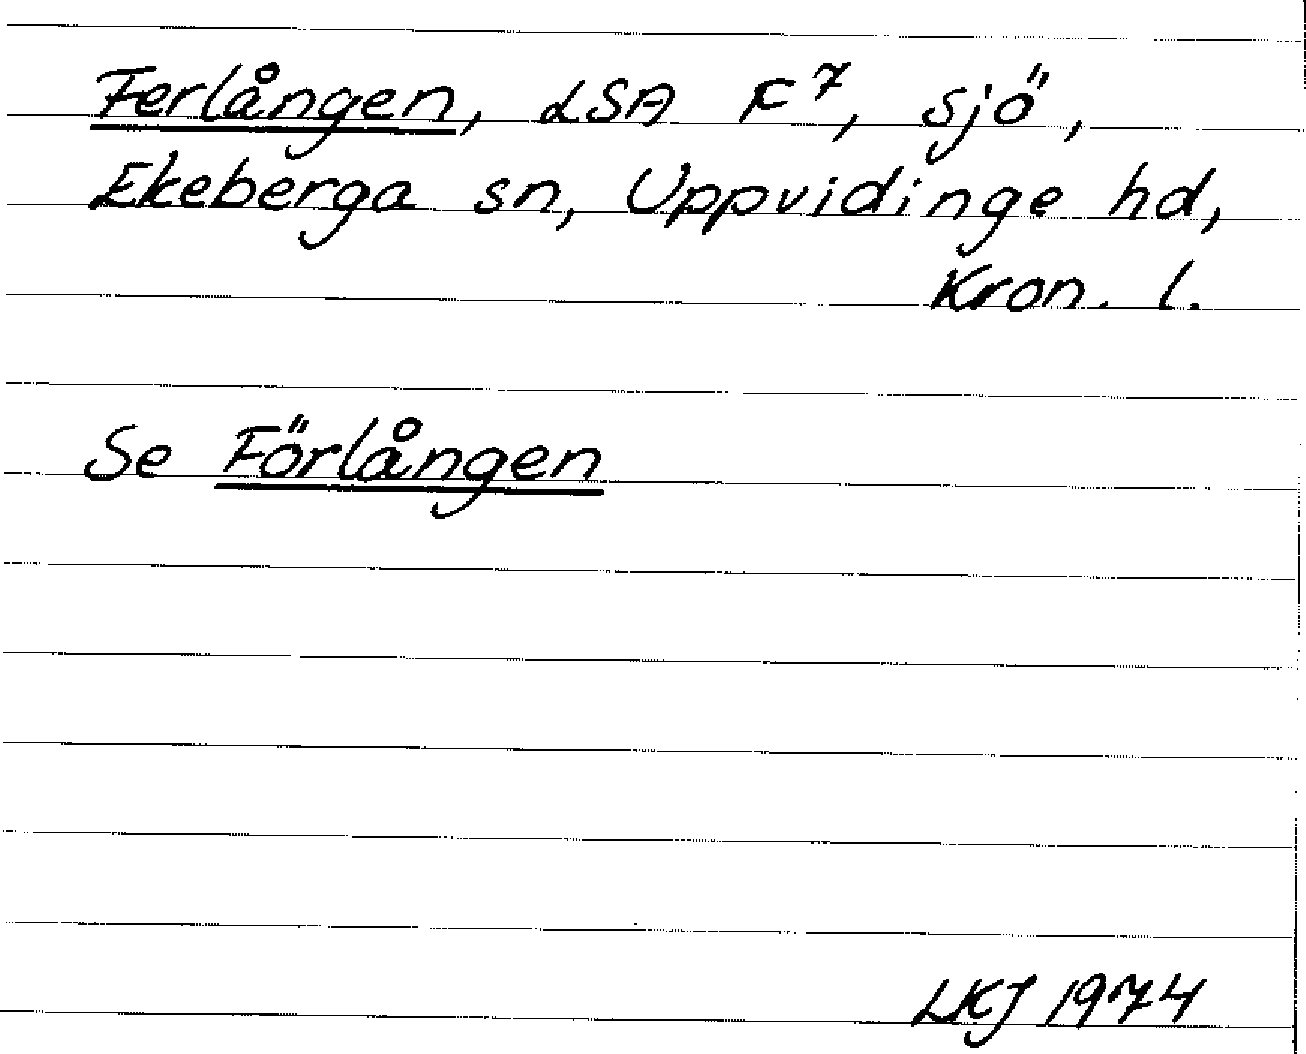 Ferlången, LSA F⁷, sjö,
Ekeberga sn, Uppvidinge hd,
Kron. l.
Se Förlången
LKJ 1974